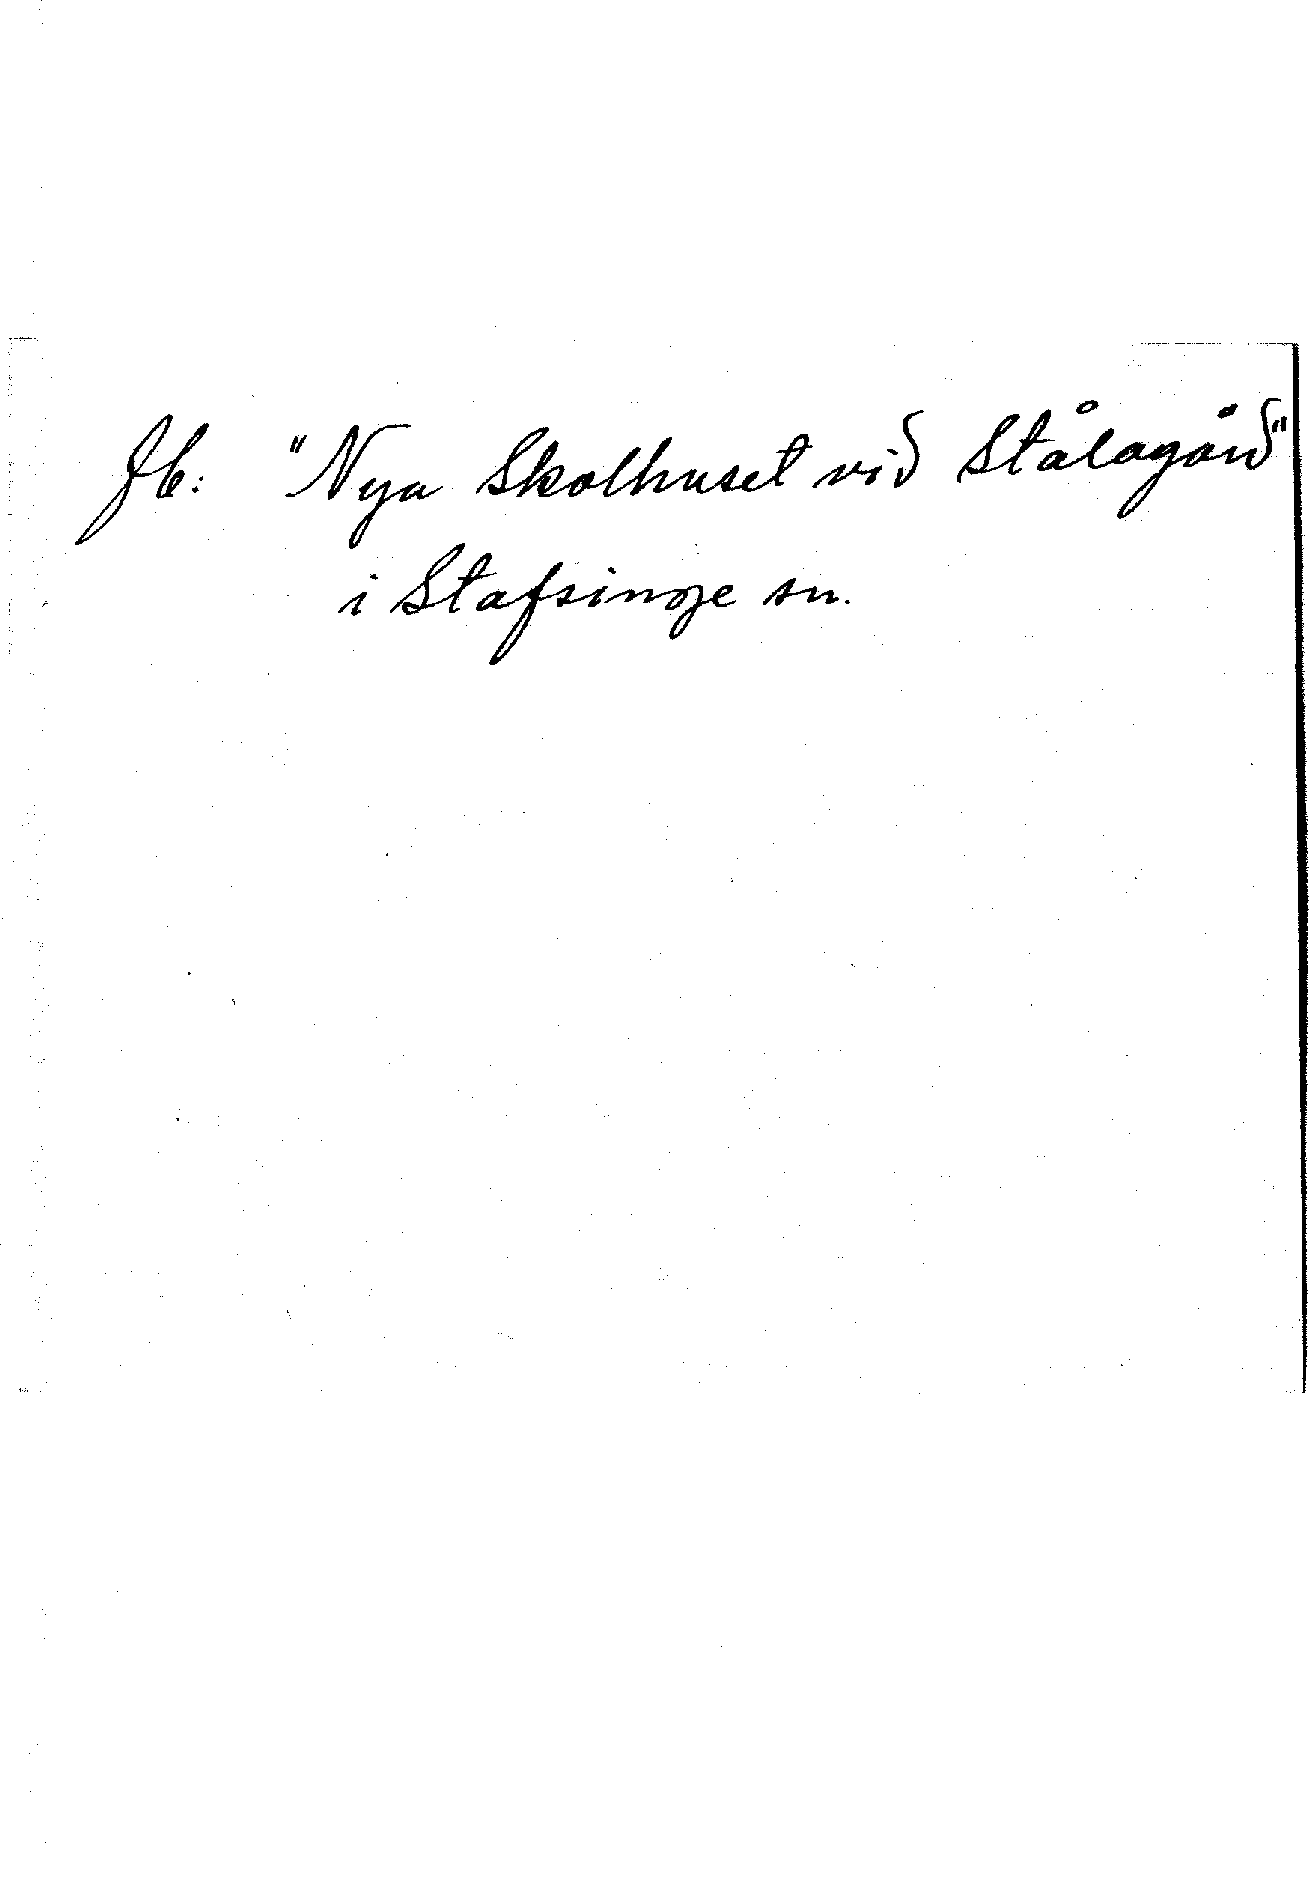 Jb: "Nya Skolhuset vid Stålagård"
i Stafsinge sn.